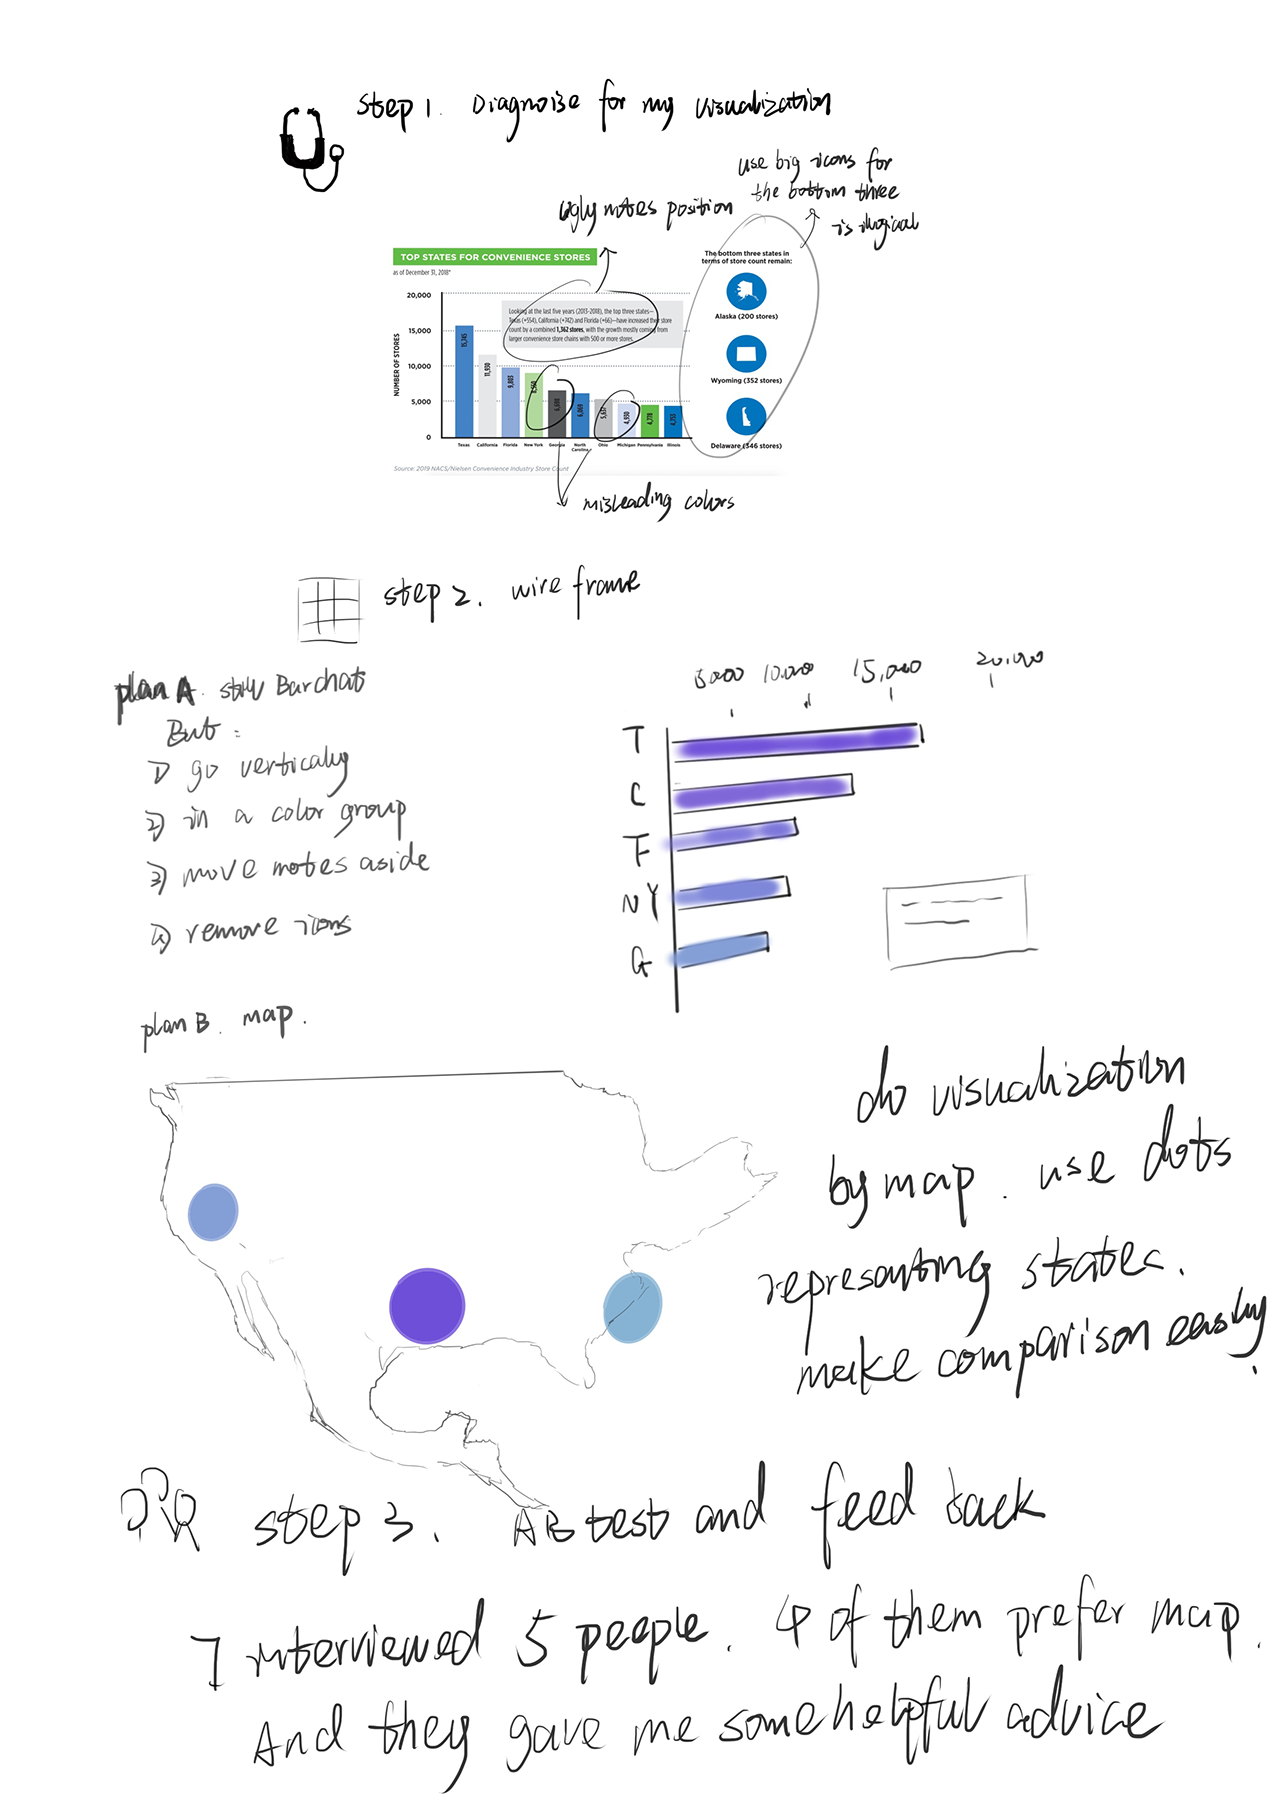 step 1. Diagnoise for my visualization
use big icons for
the bottom three
is illogical
Ugly notes position
TOP STATES FOR CONVENIENCE STORES
as of December 31, 2018*
The bottom three states in
terms of store count remain:
20,000
15,000
10,000
5,000
0
NUMBER OF STORES
Looking at the last five years (2013-2018), the top three states—
Texas (+554), California (+742) and Florida (+66)—have increased their store
count by a combined 1,362 stores, with the growth mostly coming from
larger convenience store chains with 500 or more stores.
15,745
11,930
9,803
6,069
5,657
4,930
4,778
Texas
California
Florida
New York
Georgia
North
Carolina
Ohio
Michigan
Pennsylvania
Illinois
Alaska (200 stores)
Wyoming (352 stores)
Delaware (346 stores)
Source: 2019 NACS/Nielsen Convenience Industry Store Count
misleading colors
step 2. wire frame
plan A. still Barchat
But :
1) go vertically
2) in a color group
3) move notes aside
4) remove icons
5000 10,000 15,000 20,000
T
C
F
NY
G
plan B. map.
do visualization
by map. use dots
representing states.
make comparison easily.
step 3. AB test and feed back
I interviewed 5 people. 4 of them prefer map.
And they gave me some helpful advice